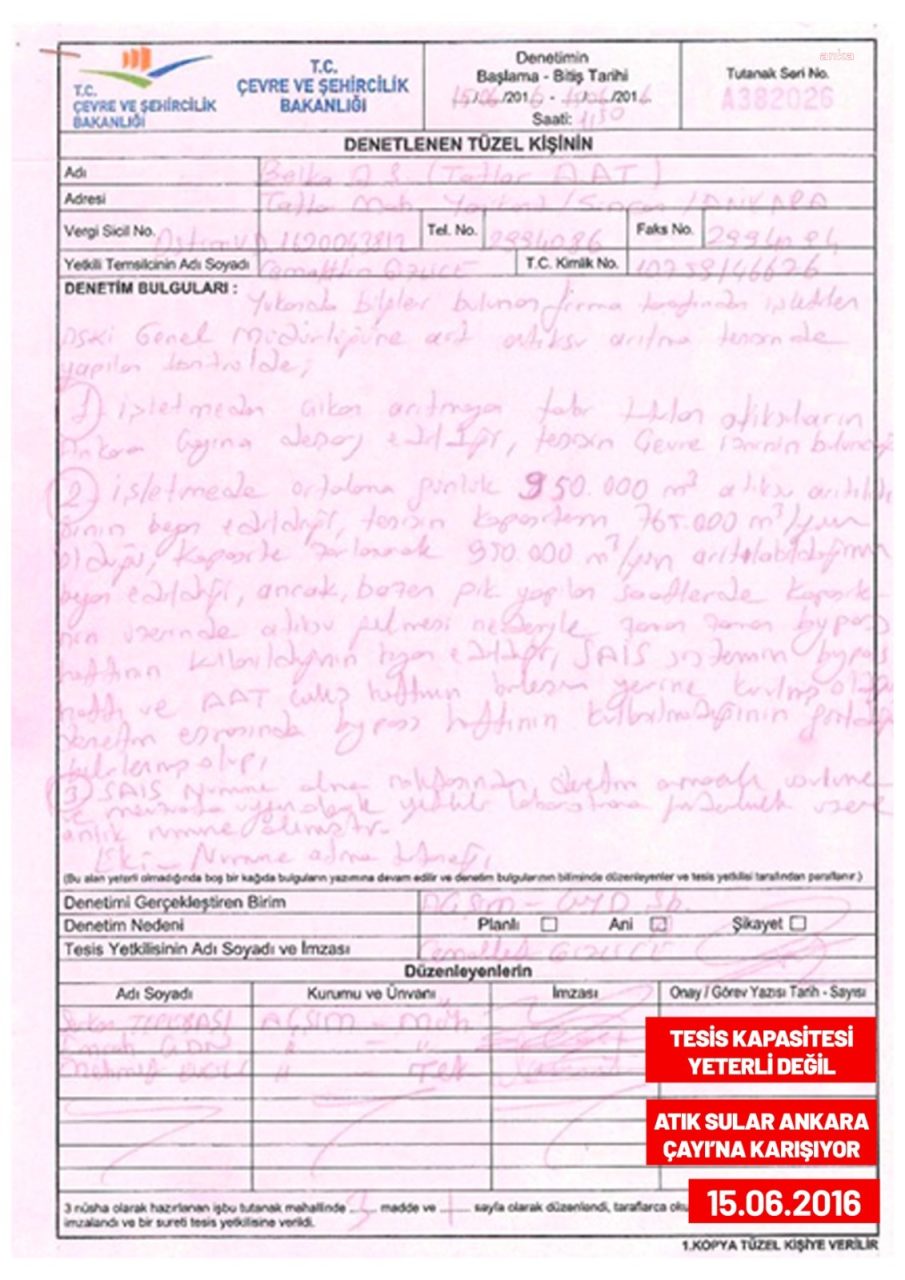 anka
T.C.
ÇEVRE VE ŞEHİRCİLİK
BAKANLIĞI
T.C.
ÇEVRE VE ŞEHİRCİLİK
BAKANLIĞI
Denetimin
Başlama - Bitiş Tarihi
15/06/2016 - 15/06/2016
Saati: 1130
Tutanak Seri No.
A382026
DENETLENEN TÜZEL KİŞİNİN
Adı Belka A.Ş. (Tatlar AAT)
Adresi Tatlar Mah. /Sincan/ANKARA
Vergi Sicil No. Tel. No. 2994086 Faks No. 29940
Yetkili Temsilcinin Adı Soyadı T.C. Kimlik No.
DENETİM BULGULARI :
Yukarıda bilgiler bulunan firma tarafından işletilen
ASKİ Genel Müdürlüğüne ait atıksu arıtma tesisinde
yapılan kontrolde;
1) işletmeden çıkan arıtmaya tabi atıksuların
Ankara Çayına deşarj edildiği, tesisin Çevre izninin
2) işletmede ortalama günlük 950.000 m³ atıksu
beyan edildiği, tesisin kapasitenin 765.000 m³/gün
olduğu, kapasite zorlanarak 950.000 m³/gün arıtılabildiğinin
beyan edildiği, ancak, bazen pik yapılan saatlerde kapasite-
nin üzerinde atıksu gelmesi nedeniyle zaman zaman bypass
hattının kullanıldığının beyan edildiği, SAİS sistemin bypass
hattı ve AAT çıkış hattının birleşim yerine
denetim esnasında bypass hattının kullanılmadığının
3) SAİS Numune alma noktasından, denetim amaçlı
ve mevzuata yetkili laboratuvara üzere
anlık numune alınmıştır.
Eki - Numune alma tutanağı
(Bu alan yeterli olmadığında boş bir kağıda bulguların yazımına devam edilir ve denetim bulgularının bitiminde düzenleyenler ve tesis yetkilisi tarafından paraflanır.)
Denetimi Gerçekleştiren Birim
Denetim Nedeni Planlı Ani Şikayet
Tesis Yetkilisinin Adı Soyadı ve İmzası
Düzenleyenlerin
Adı Soyadı Kurumu ve Ünvanı İmzası Onay / Görev Yazısı Tarih - Sayısı
TESİS KAPASİTESİ
YETERLİ DEĞİL
ATIK SULAR ANKARA
ÇAYI’NA KARIŞIYOR
15.06.2016
3 nüsha olarak hazırlanan işbu tutanak mahallinde 3 madde ve 1 sayfa olarak düzenlendi, taraflarca
imzalandı ve bir sureti tesis yetkilisine verildi.
1.KOPYA TÜZEL KİŞİYE VERİLİR